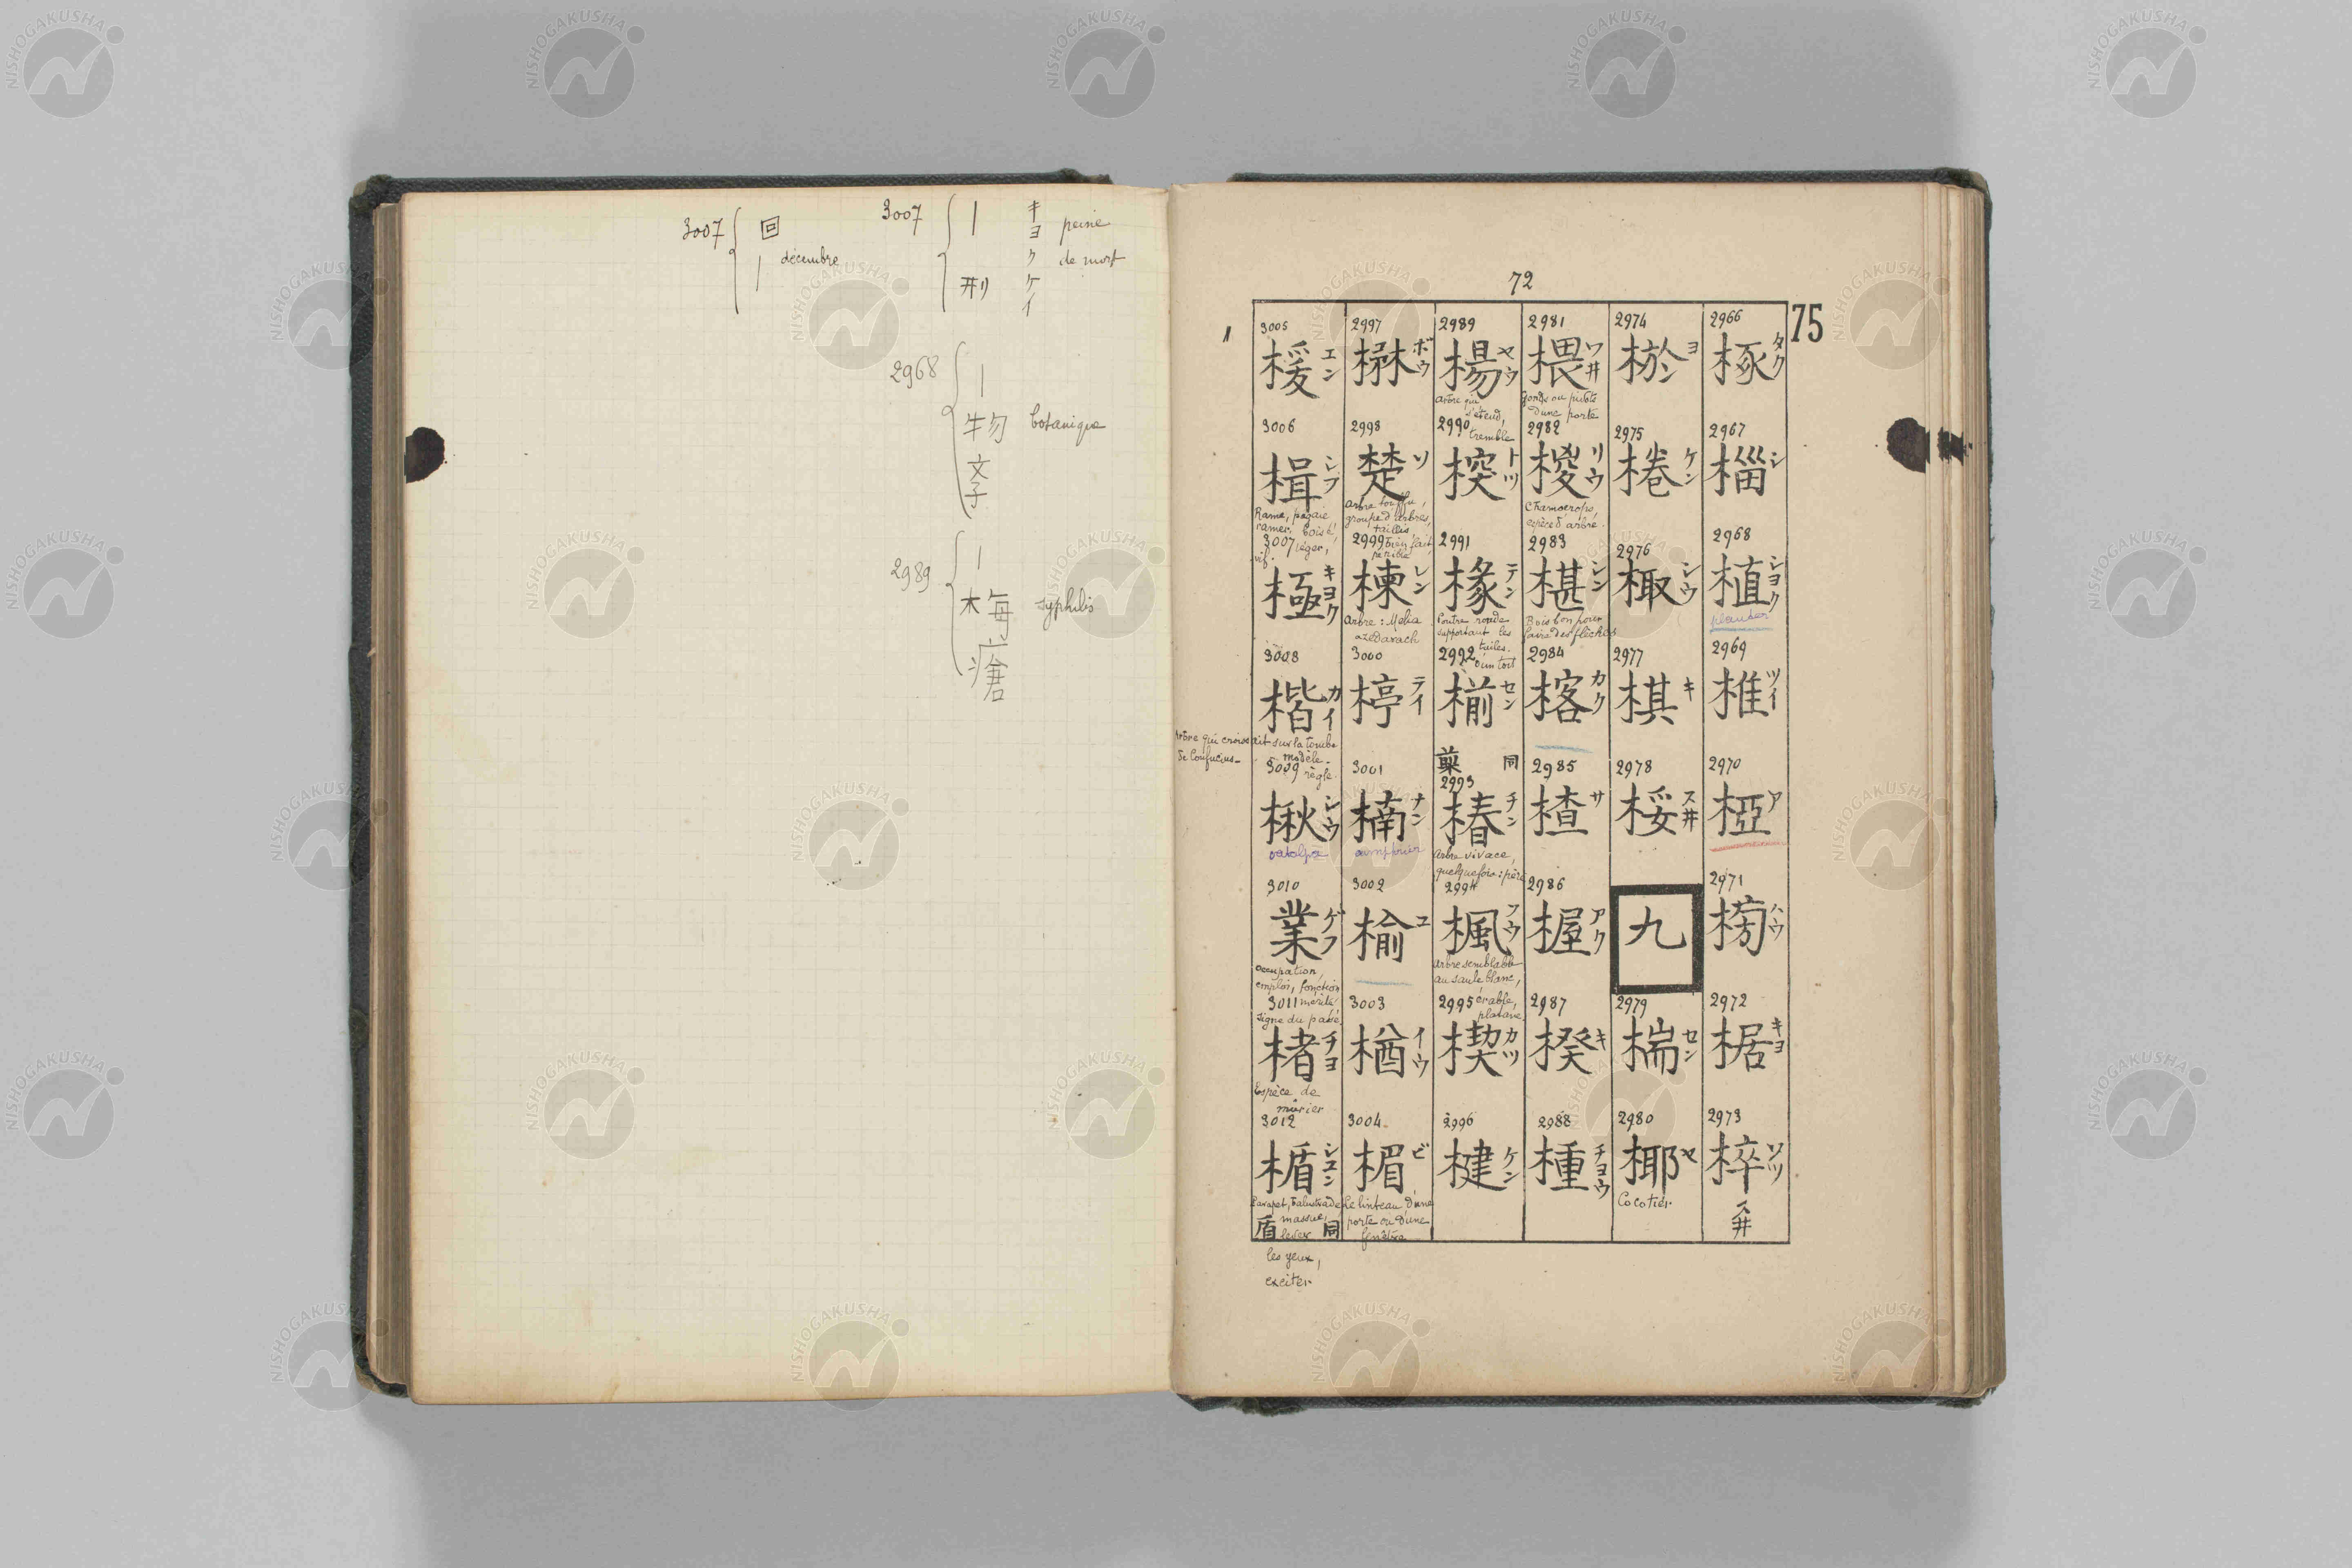 3007 回 | décembre
3007 | 刑 キヨクケイ peine de mort
2968 | 物 学 botanique
2989 | 梅 瘡 syphilis
72
75
2966 椓 タク
2967 椔 シ
2968 植 シヨク
planter
2969 椎 ツイ
2970 椏 ア
2971 椦 ハウ
2972 椐 キヨ
2973 椊 ソツ スヰ
2974 棜 ヨ
2975 棬 ケン
2976 棷 シウ
2977 棋 キ
2978 桵 スヰ
九
2979 椯 セン
2980 椰 ヤ
Cocotier
2981 椳 ワヰ
gonds ou pivots
d'une porte
2982 椶 リウ
Chamoerops,
espèce d'arbre.
2983 椹 シン
Bois bon pour
faire des flèches
2984 楁 カク
2985 楂 サ
2986 楃 アク
2987 楑 キ
2988 種 チヨウ
2989 楊 ヤウ
Arbre qui
s'étend,
tremble
2990 楔 トツ
2991 椽 テン
Poutre ronde
supportant les
tuiles
d'un toit
2992 椾 セン
同
2993 椿 チン
Arbre vivace,
quelquefois : père
2994 楓 フウ
Arbre semblable
au saule blanc,
érable,
platane
2995 楔 カツ
2996 楗 ケン
2997 楙 ボウ
2998 楚 ソ
Arbre touffu,
groupe d'arbres,
taillis
bien fait
pénible
2999 楝 レン
Arbre : Melia
azédarach
3000 楟 テイ
3001 楠 ナン
camphrier
3002 楡 ユ
3003 楢 イウ
3004 楣 ビ
Le linteau d'une
porte ou d'une
fenêtre
3005 楥 エン
3006 楫 シフ
Rame, pagaie
ramer, boisé,
léger,
vif.
3007 極 キヨク
3008 楷 カイ
Arbre qui croissait sur la tombe
de Confucius
modèle
règle
3009 楸 シウ
catalpa
3010 業 ゲフ
occupation,
emploi, fonction
mérite
signe du passé
3011 楮 チヨ
Espèce de
mûrier
3012 楯 シユン
Parapet, balustrade
massue,
盾 同
lever
les yeux,
exciter